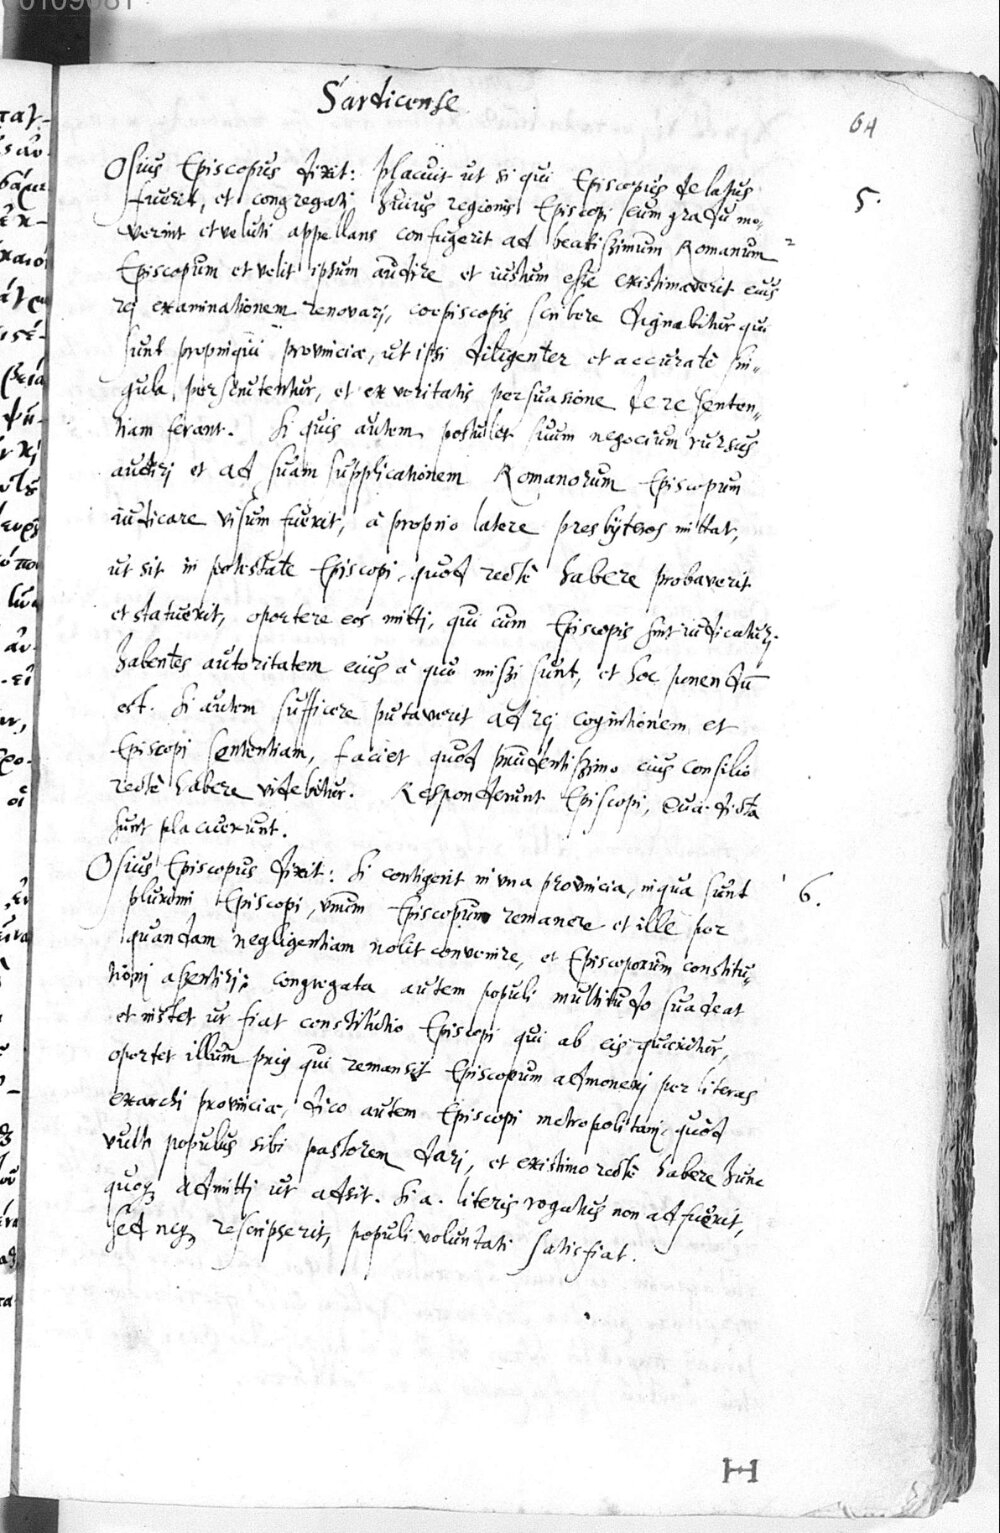 Sardicense
64
Osius Episcopus dixit: placuit ut si qui Episcopus delatus 5.
fuerit, et congregati huius regionis Episcopi eum gradu mo„
verint et veluti appellans confugerit ad beatissimum Romanum
Episcopum et velit ipsum audire et iustum esse existimaverit eius
rei examinationem renovari, coepiscopis scribere dignabitur qui
sunt propinqui provinciæ, ut ipsi diligenter et accuratè sin„
gula perscrutentur, et ex veritatis persuasione de re senten„
tiam ferant. Si quis autem postulet suum negocium rursus
audiri et ad suam supplicationem Romanorum Episcopum
iudicare visum fuerit, à proprio latere presbyteros mittat,
ut sit in potestate Episcopi, quod rectè habere probaverit
et statuerit, oportere eos mitti, qui cum Episcopis sint iudicaturi.
habentes autoritatem eius à quo missi sunt, et hoc ponendū
est. Si autem sufficere putaverit ad rei cognitionem et
Episcopi sententiam, faciet quod prudentissimo eius consilio
rectè habere videbitur. Responderunt Episcopi, Qua dicta
sunt placuerunt.
Osius Episcopus dixit: Si contigerit in una provincia, in qua sunt 6.
plurimi Episcopi, unum Episcopum remanere et ille per
quandam negligentiam nolit convenire, et Episcoporum constitu„
tioni assentiri: congregata autem populi multitudo suadeat
et instet ut fiat constitutio Episcopi qui ab eis quæritur,
oportet illum prius qui remansit Episcopum admoneri per literas
exarchi provinciæ, dico autem Episcopi metropolitani, quod
vult populus sibi pastorem dari, et existimo rectè habere hunc
quoq admitti ut adsit. Si a. literis rogatus non adfuerit,
sed neq rescripserit, populi voluntati satisfiat.
H